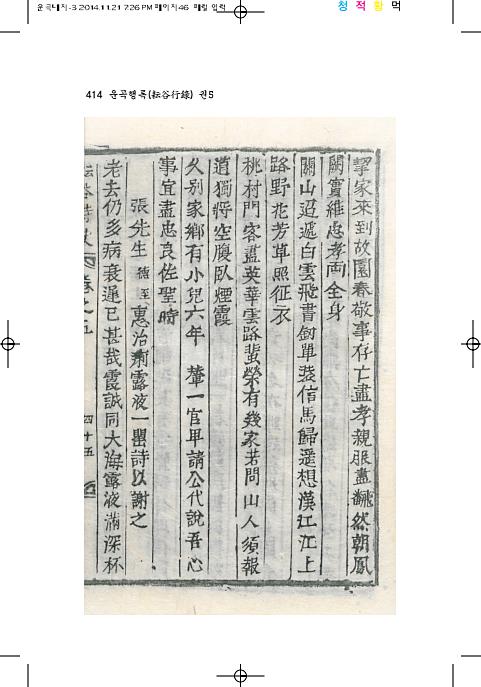 운곡내지-3 2014.11.21 7:26 PM 페이지46 매일 입력
청 적 황 먹
414 운곡행록(耘谷行錄) 권5
挈家來到故園春敬事存亡盡孝親服盡飜然朝鳳
闕實維忠孝兩全身
關山迢遞白雲飛書劒單裝信馬歸遥想漢江江上
路野花芳草照征衣
桃村門客盡英華雲路蜚榮有幾家若問山人須報
道獨將空腹臥煙霞
久別家鄕有小兒六年 輦一官卑請公代說吾心
事宜盡忠良佐聖時
張先生 德至 惠治痢露液一甖詩以謝之
老去仍多病衰遲已甚哉霞誠同大海露液滿深杯
耘谷詩史 卷之五 四十五